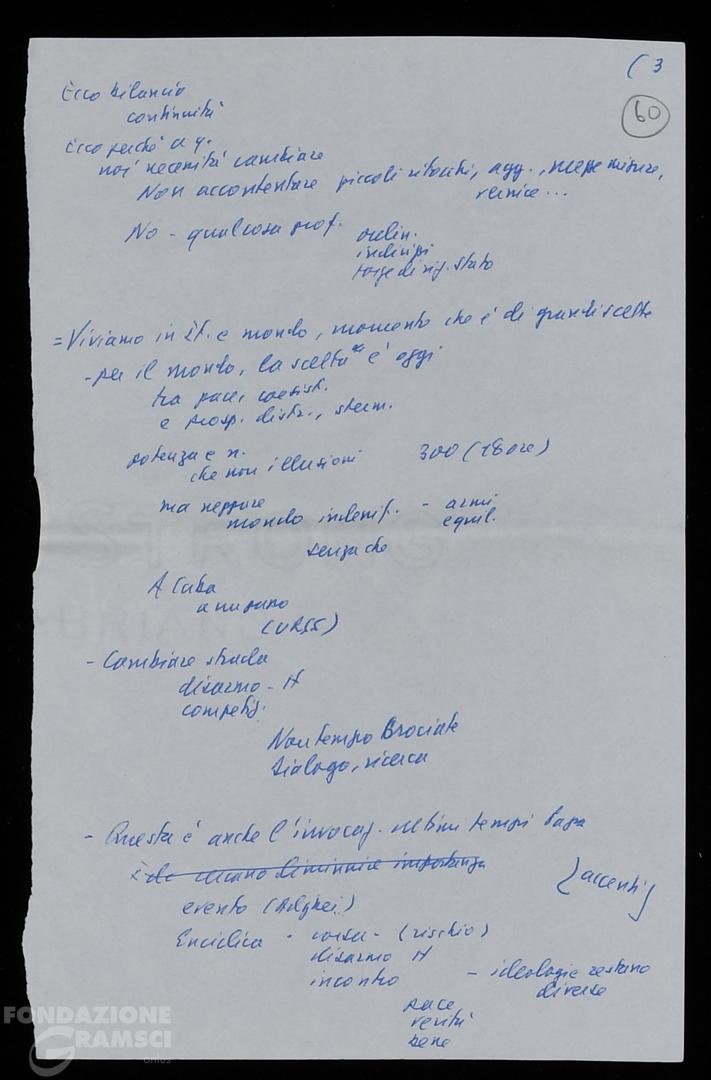 (3
60
Ecco bilancio
continuità
Ecco perché a q.
noi necessità cambiare
Non accontentare piccoli ritocchi, agg., mezze misure,
vernice...
No - qualcosa prof.
ordin.
indirizzi
stato
= Viviamo in It. e mondo, momento che è di grandi scelte
- per il mondo, la scelta è oggi
tra pace, coesist.
e prosp. distr., sterm.
potenza e n.
che non illusioni 300 (18 ore)
ma neppure
mondo indenif. - armi
equil.
senza che
A Cuba
(URSS)
- Cambiare strada
disarmo - H
competiz.
Non tempo Crociate
Dialogo, ricerca
- Questa è anche l'invocaz. ultimi tempi Papa
diminuire importanza
{accenti}
evento (Adghei)
Enciclica - corsa - (rischio)
disarmo H
incontro - ideologie restano
diverse
pace
verità
bene
STRONG
BRIAN
FONDAZIONE
GRAMSCI
onlus